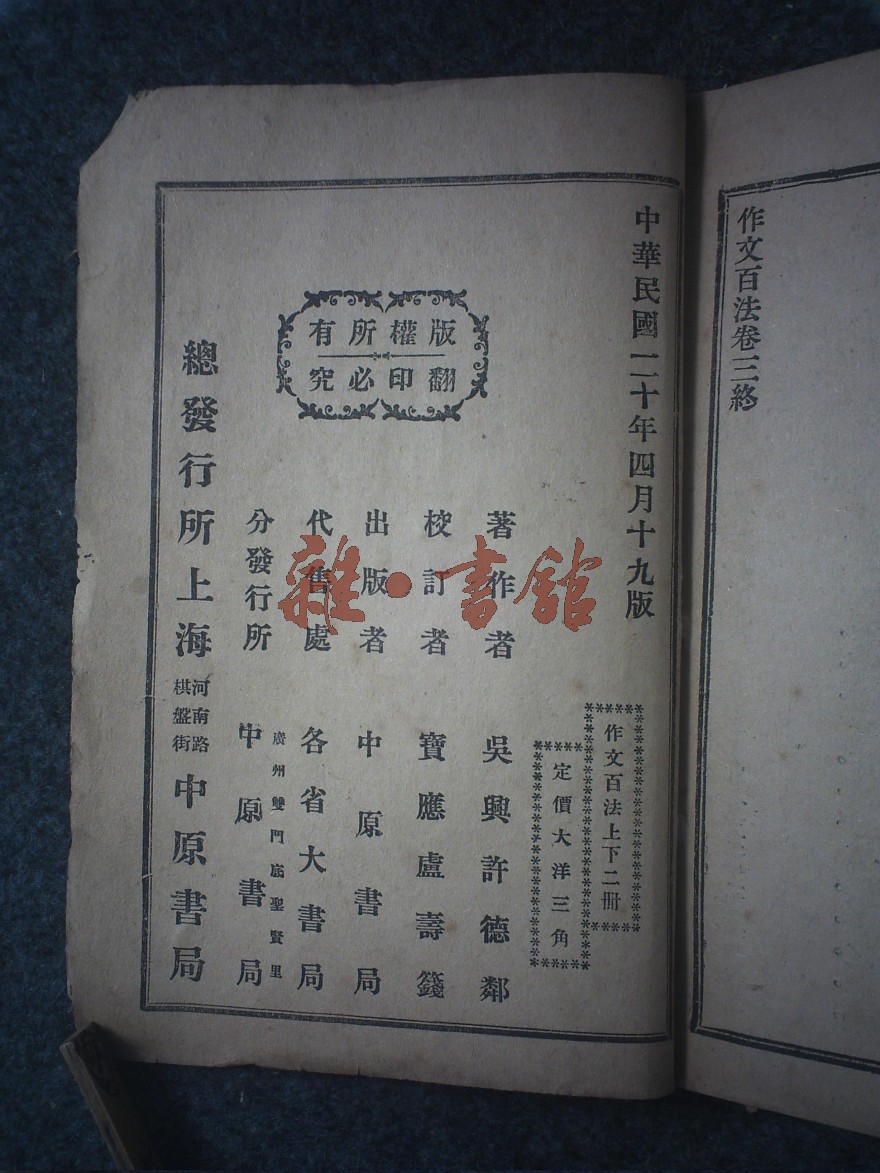 作文百法卷三終
中華民國二十年四月十九版
作文百法上下二冊
定價大洋三角
版權所有
翻印必究
著作者 吳興許德鄰
校訂者 寶應盧壽籛
出版者 中原書局
代售處 各省大書局
分發行所 廣州雙門底聖賢里 中原書局
總發行所上海 河南路棋盤街 中原書局
雜·書館